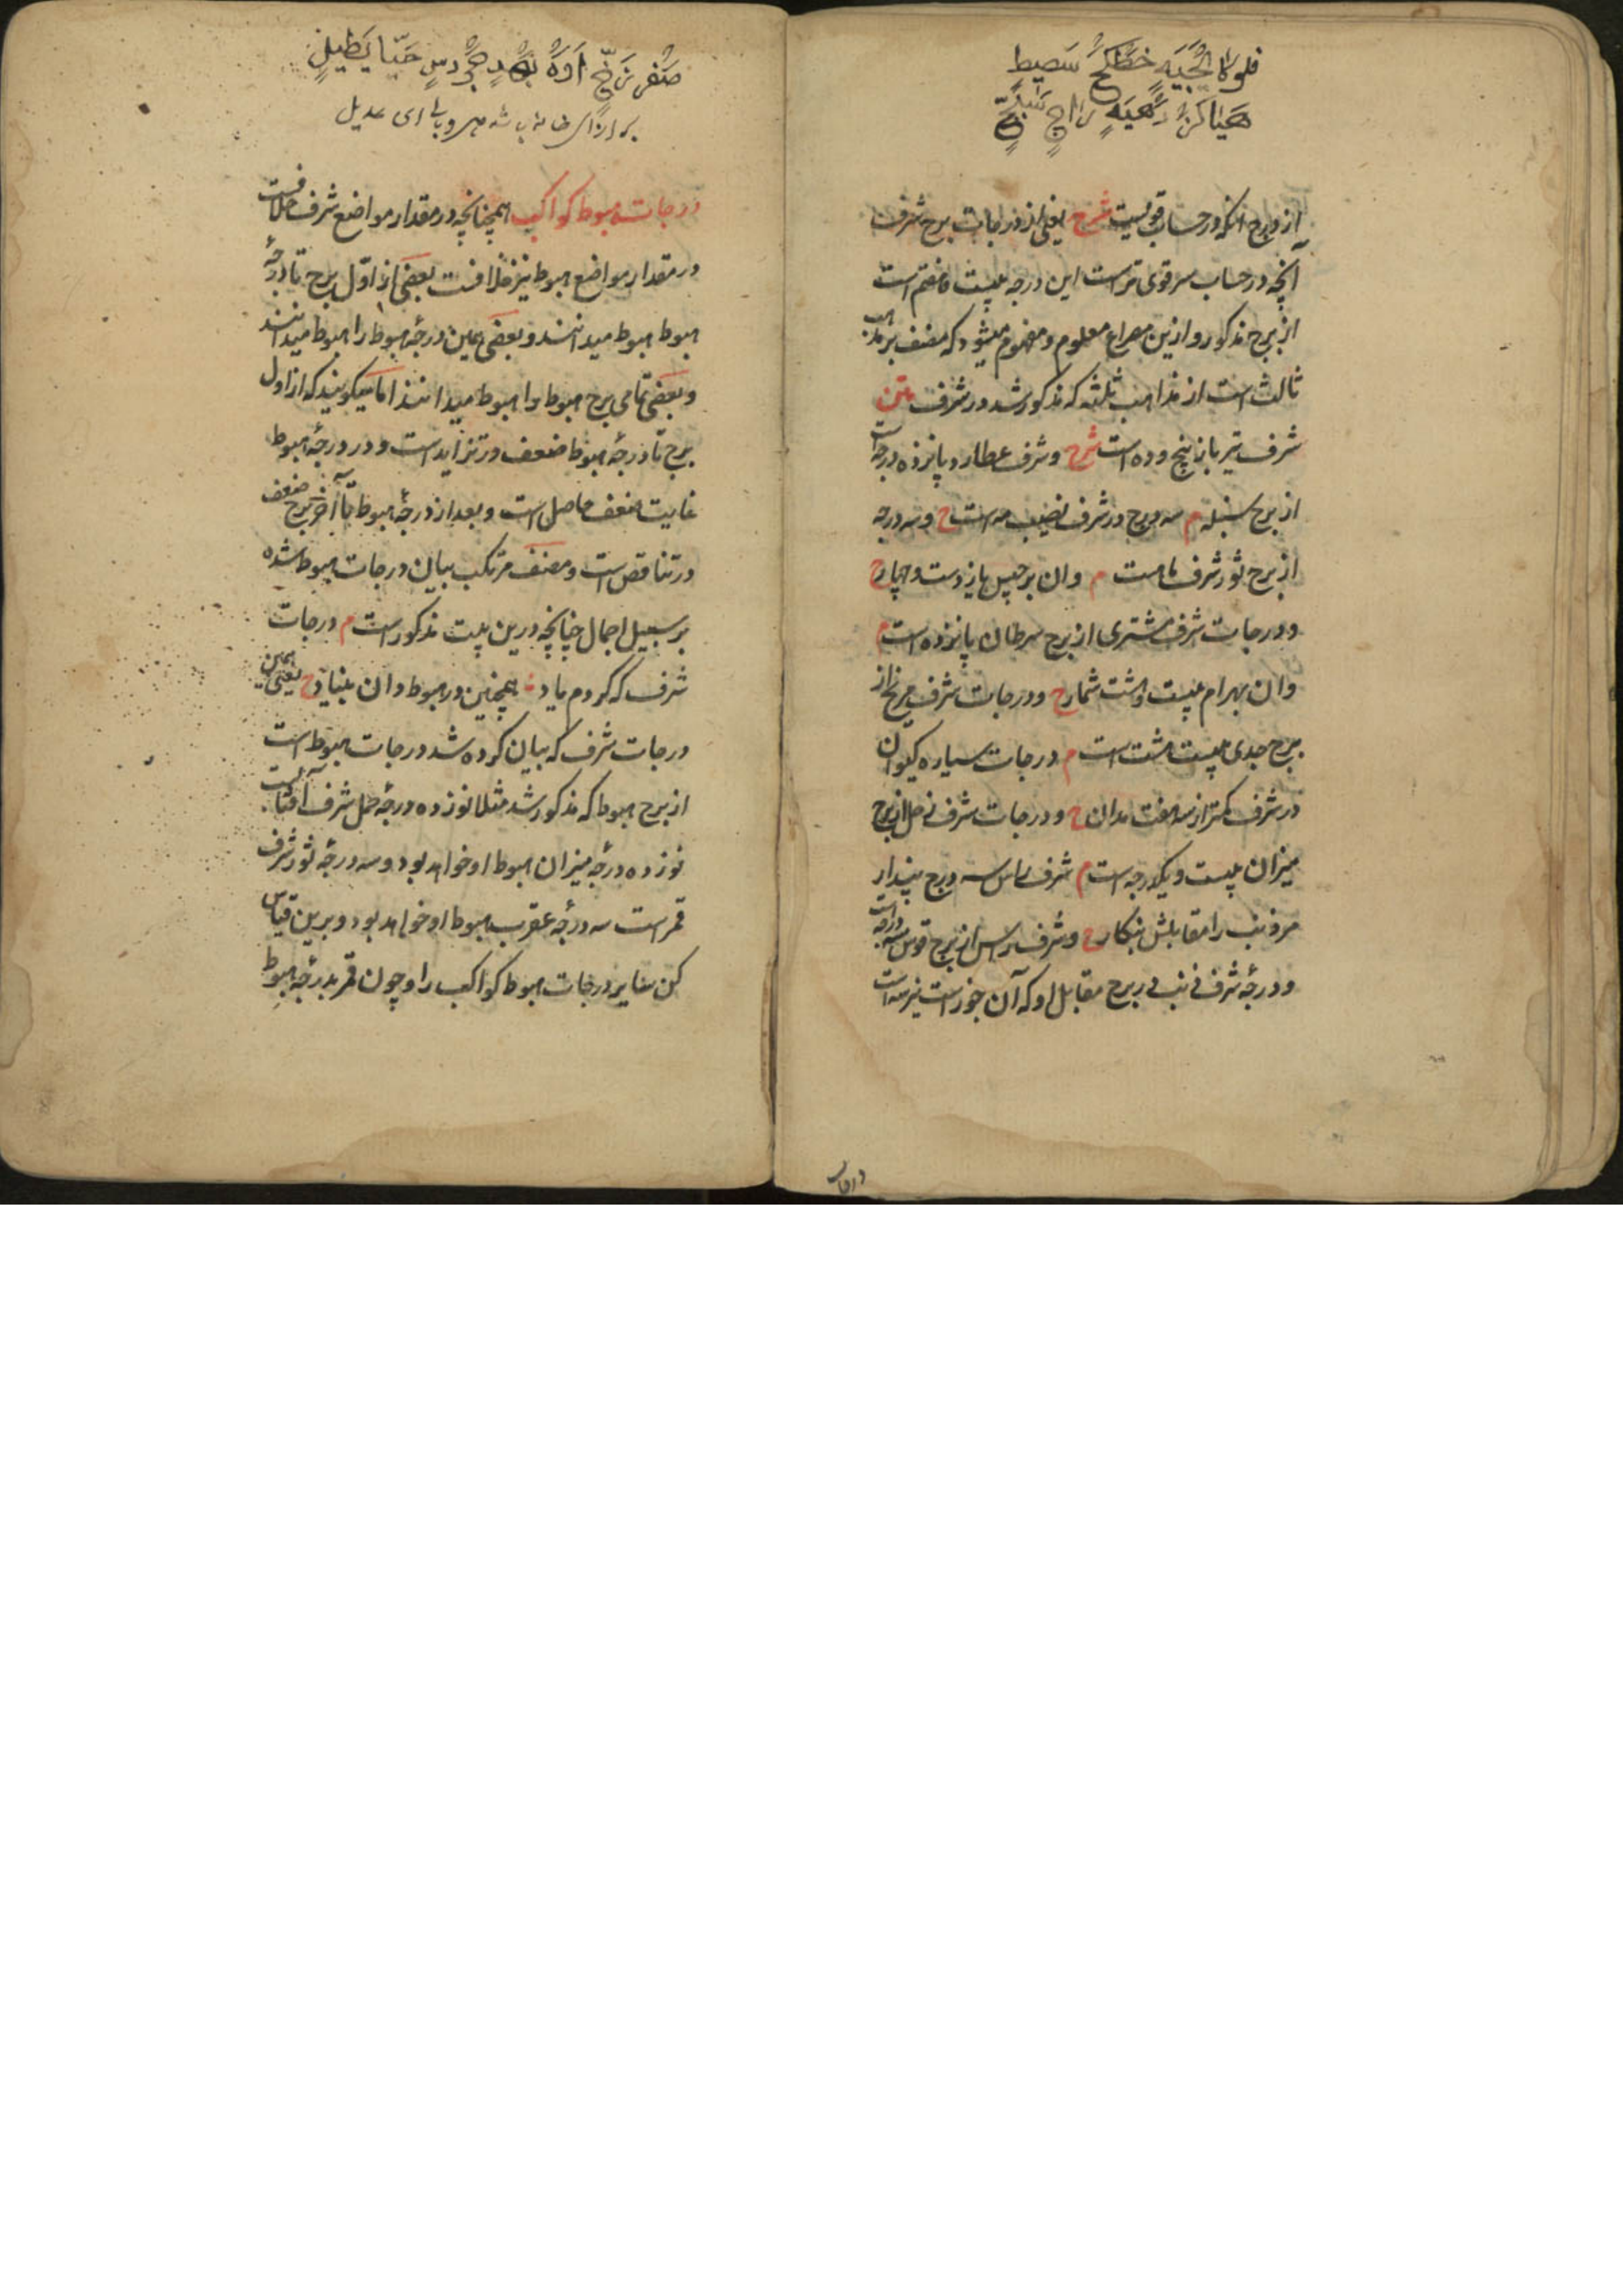 از درج انکه در حساب قویست شرح یعنی از درجات برج شرف
آنچه در حساب سر قوی تر است این درجه بیست و هفتم است
از برج مذکور و ازین مصراع معلوم و مفهوم میشود که مصنف بر مذهب
ثالث است از مذاهب ثلثه که مذکور شد در شرف متن
شرف تیر باز پنج و ده است شرح و شرف عطارد پانزده درجه است
از برج سنبله م سه درج در شرف نصیب مه است ح و سه درجه
از برج ثور شرف ماهست م وان برجیس یازدست و چهار ح
و درجات شرف مشتری از برج سرطان پانزده است م
وان بهرام بیست و هشت شمار ح و درجات شرف مریخ از
برج جدی بیست هشت است م درجات سیاره کیوان
در شرف کمتر از سه هفت مدان ح و درجات شرف زحل از برج
میزان بیست و یکدرجه است م شرف راس سه درج پندار
مر ذنب را مقابلش بنکار ح و شرف راس از برج قوس سه درجه است
و درجهٔ شرف ذنب در برج مقابل او که آن جوزاست نیز سه است
درجات
درجات هبوط کواکب همچنانچه در مقدار مواضع شرف خلافست
در مقدار مواضع هبوط نیز خلافست بعضی از اوّل برج تا درجهٔ
هبوط هبوط میدانند و بعضی همین درجهٔ هبوط را هبوط میدانند
و بعضی تمامی برج هبوط را هبوط میدانند اما میکویند که از اول
برج تا درجهٔ هبوط ضعف در تزاید است و در درجهٔ هبوط
غایت ضعف حاصل است و بعد از درجهٔ هبوط تا آخر برج ضعف
در تناقص است و مصنف مرتکب بیان درجات هبوط شده
بر سبیل اجمال چنانچه درین بیت مذکور است م درجات
شرف که کردم یاد همچنین در هبوط دان بنیاد ح یعنی همین
درجات شرف که بیان کرده شد درجات هبوط است
از برج هبوط که مذکور شد مثلا نوزده درجه حمل شرف آفتابست
نوزده درجه میزان هبوط او خواهد بود و سه درجه ثور شرف
قمر است سه درجه عقرب هبوط او خواهد بود و برین قیاس
کن سایر درجات هبوط کواکب را و چون قمر بدرجهٔ هبوط